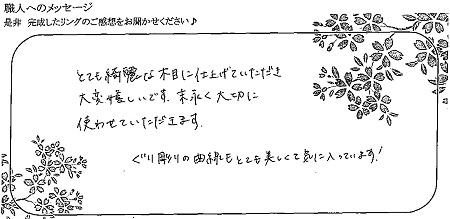 職人へのメッセージ
是非 完成したリングのご感想をお聞かせください♪
とても綺麗な木目に仕上げていただき
大変嬉しいです。末永く大切に
使わせていただきます。
ぐり彫りの曲線もとても美しくて気に入っています!